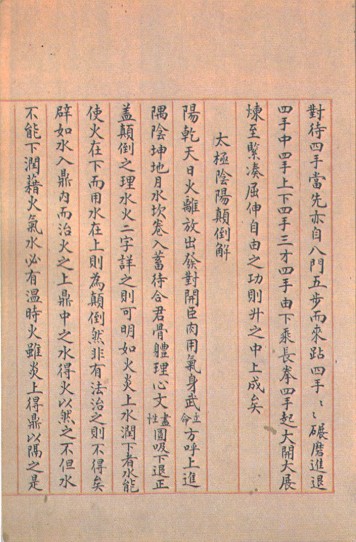 對待四手當先亦自八門五步而來跕四手〻碾磨進退
四手中四手上下四手三才四手由下乘長拳四手起大開大展
煉至緊凑屈伸自由之功則升之中上成矣
太極陰陽顛倒解
陽乾天日火離放出發對開臣肉用氣身武立命方呼上進
隅陰坤地月水坎卷入蓄待合君骨體理心文盡性圓吸下退正
蓋顛倒之理水火二字詳之則可明如火炎上水潤下者水能
使火在下而用水在上則為顛倒然非有法治之則不得矣
辟如水入鼎內而治火之上鼎中之水得火以然之不但水
不能下潤藉火氣水必有溫時火雖炎上得鼎以隔之是